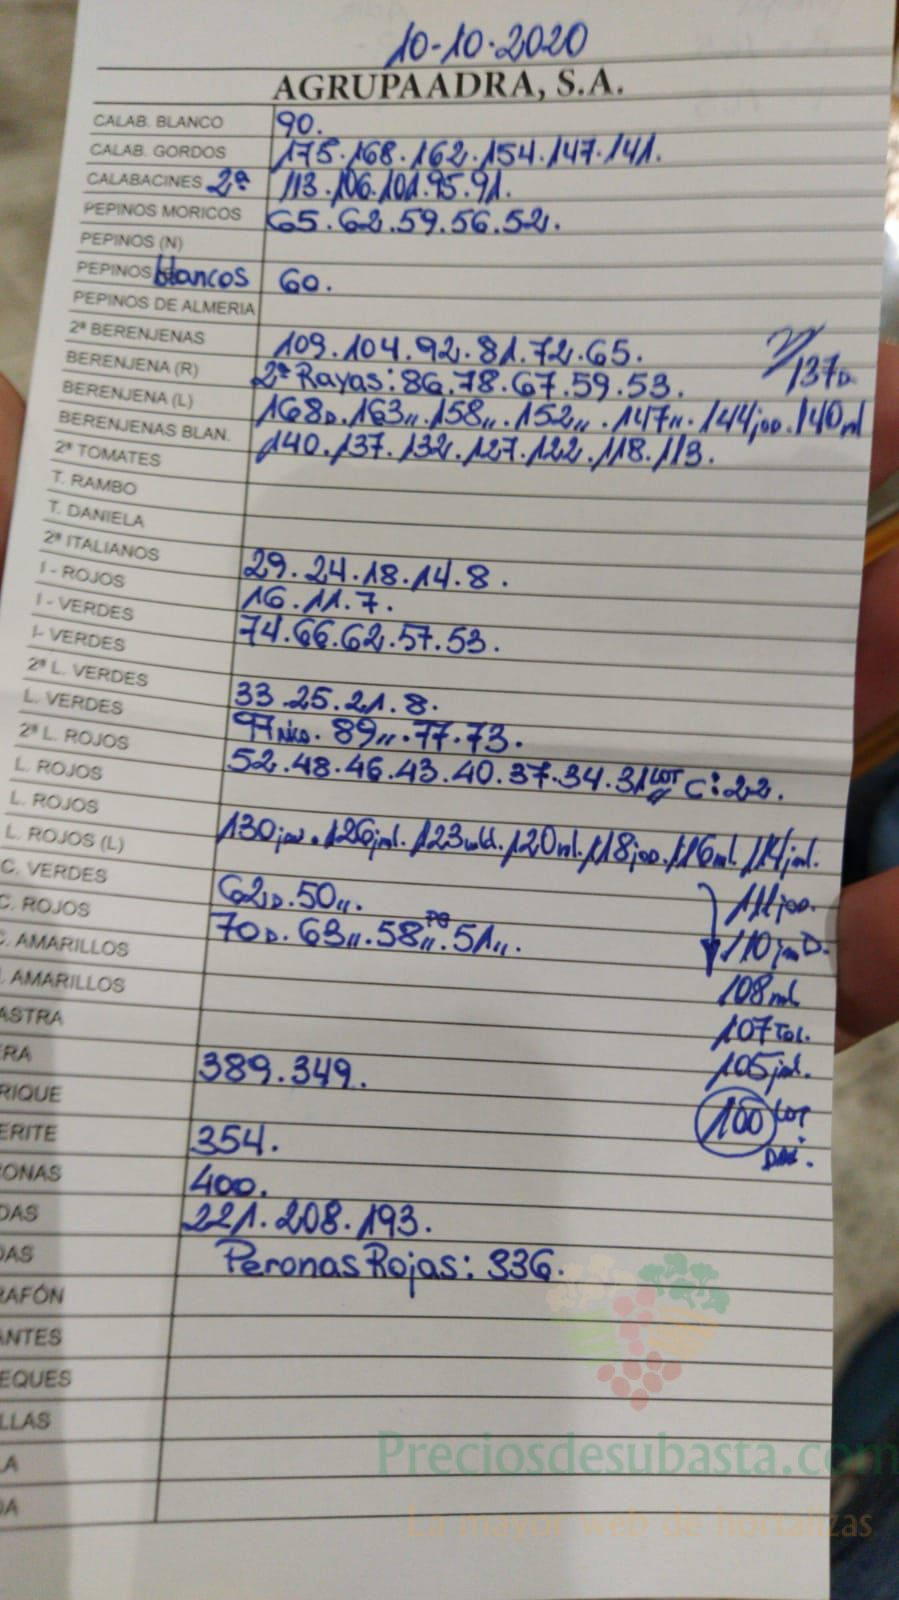 10-10-2020
AGRUPAADRA, S.A.
CALAB. BLANCO 90.
CALAB. GORDOS 175.168.162.154.147.141.
CALABACINES 2ª 113.106.101.95.91.
PEPINOS MORICOS 65.62.59.56.52.
PEPINOS (N)
PEPINOS blancos 60.
PEPINOS DE ALMERIA
2ª BERENJENAS 109.104.92.81.72.65.
BERENJENA (R) 2ª Rayas: 86.78.67.59.53. 137D
BERENJENA (L) 168D.163,,.158,,.152,,.147,,.144joo.140ml
BERENJENAS BLAN. 140.137.132.127.122.118.113.
2ª TOMATES
T. RAMBO
T. DANIELA
2ª ITALIANOS 29.24.18.14.8.
I - ROJOS 16.11.7.
I - VERDES 74.66.62.57.53.
I- VERDES
2ª L. VERDES 33.25.21.8.
L. VERDES 97 89,,.77.73.
2ª L. ROJOS 52.48.46.43.40.37.34.31 LOT C:22.
L. ROJOS
L. ROJOS 130.126jml.123.120ml.118joo.116ml.114jml.
L. ROJOS (L)
C. VERDES 62D.50,,. 111joo.
C. ROJOS 70D.63,,.58,,.51,,. 110jmD.
C. AMARILLOS 108ml
. AMARILLOS 107TOL.
ASTRA 105jml.
ERA 389.349. 100 LOT
RIQUE
ERITE 354.
RONAS 400.
DAS 221.208.193.
DAS Peronas Rojas: 336.
RAFÓN
ANTES
EQUES
LLAS
LA
DA
Preciosdesubasta.com
La mayor web de hortalizas